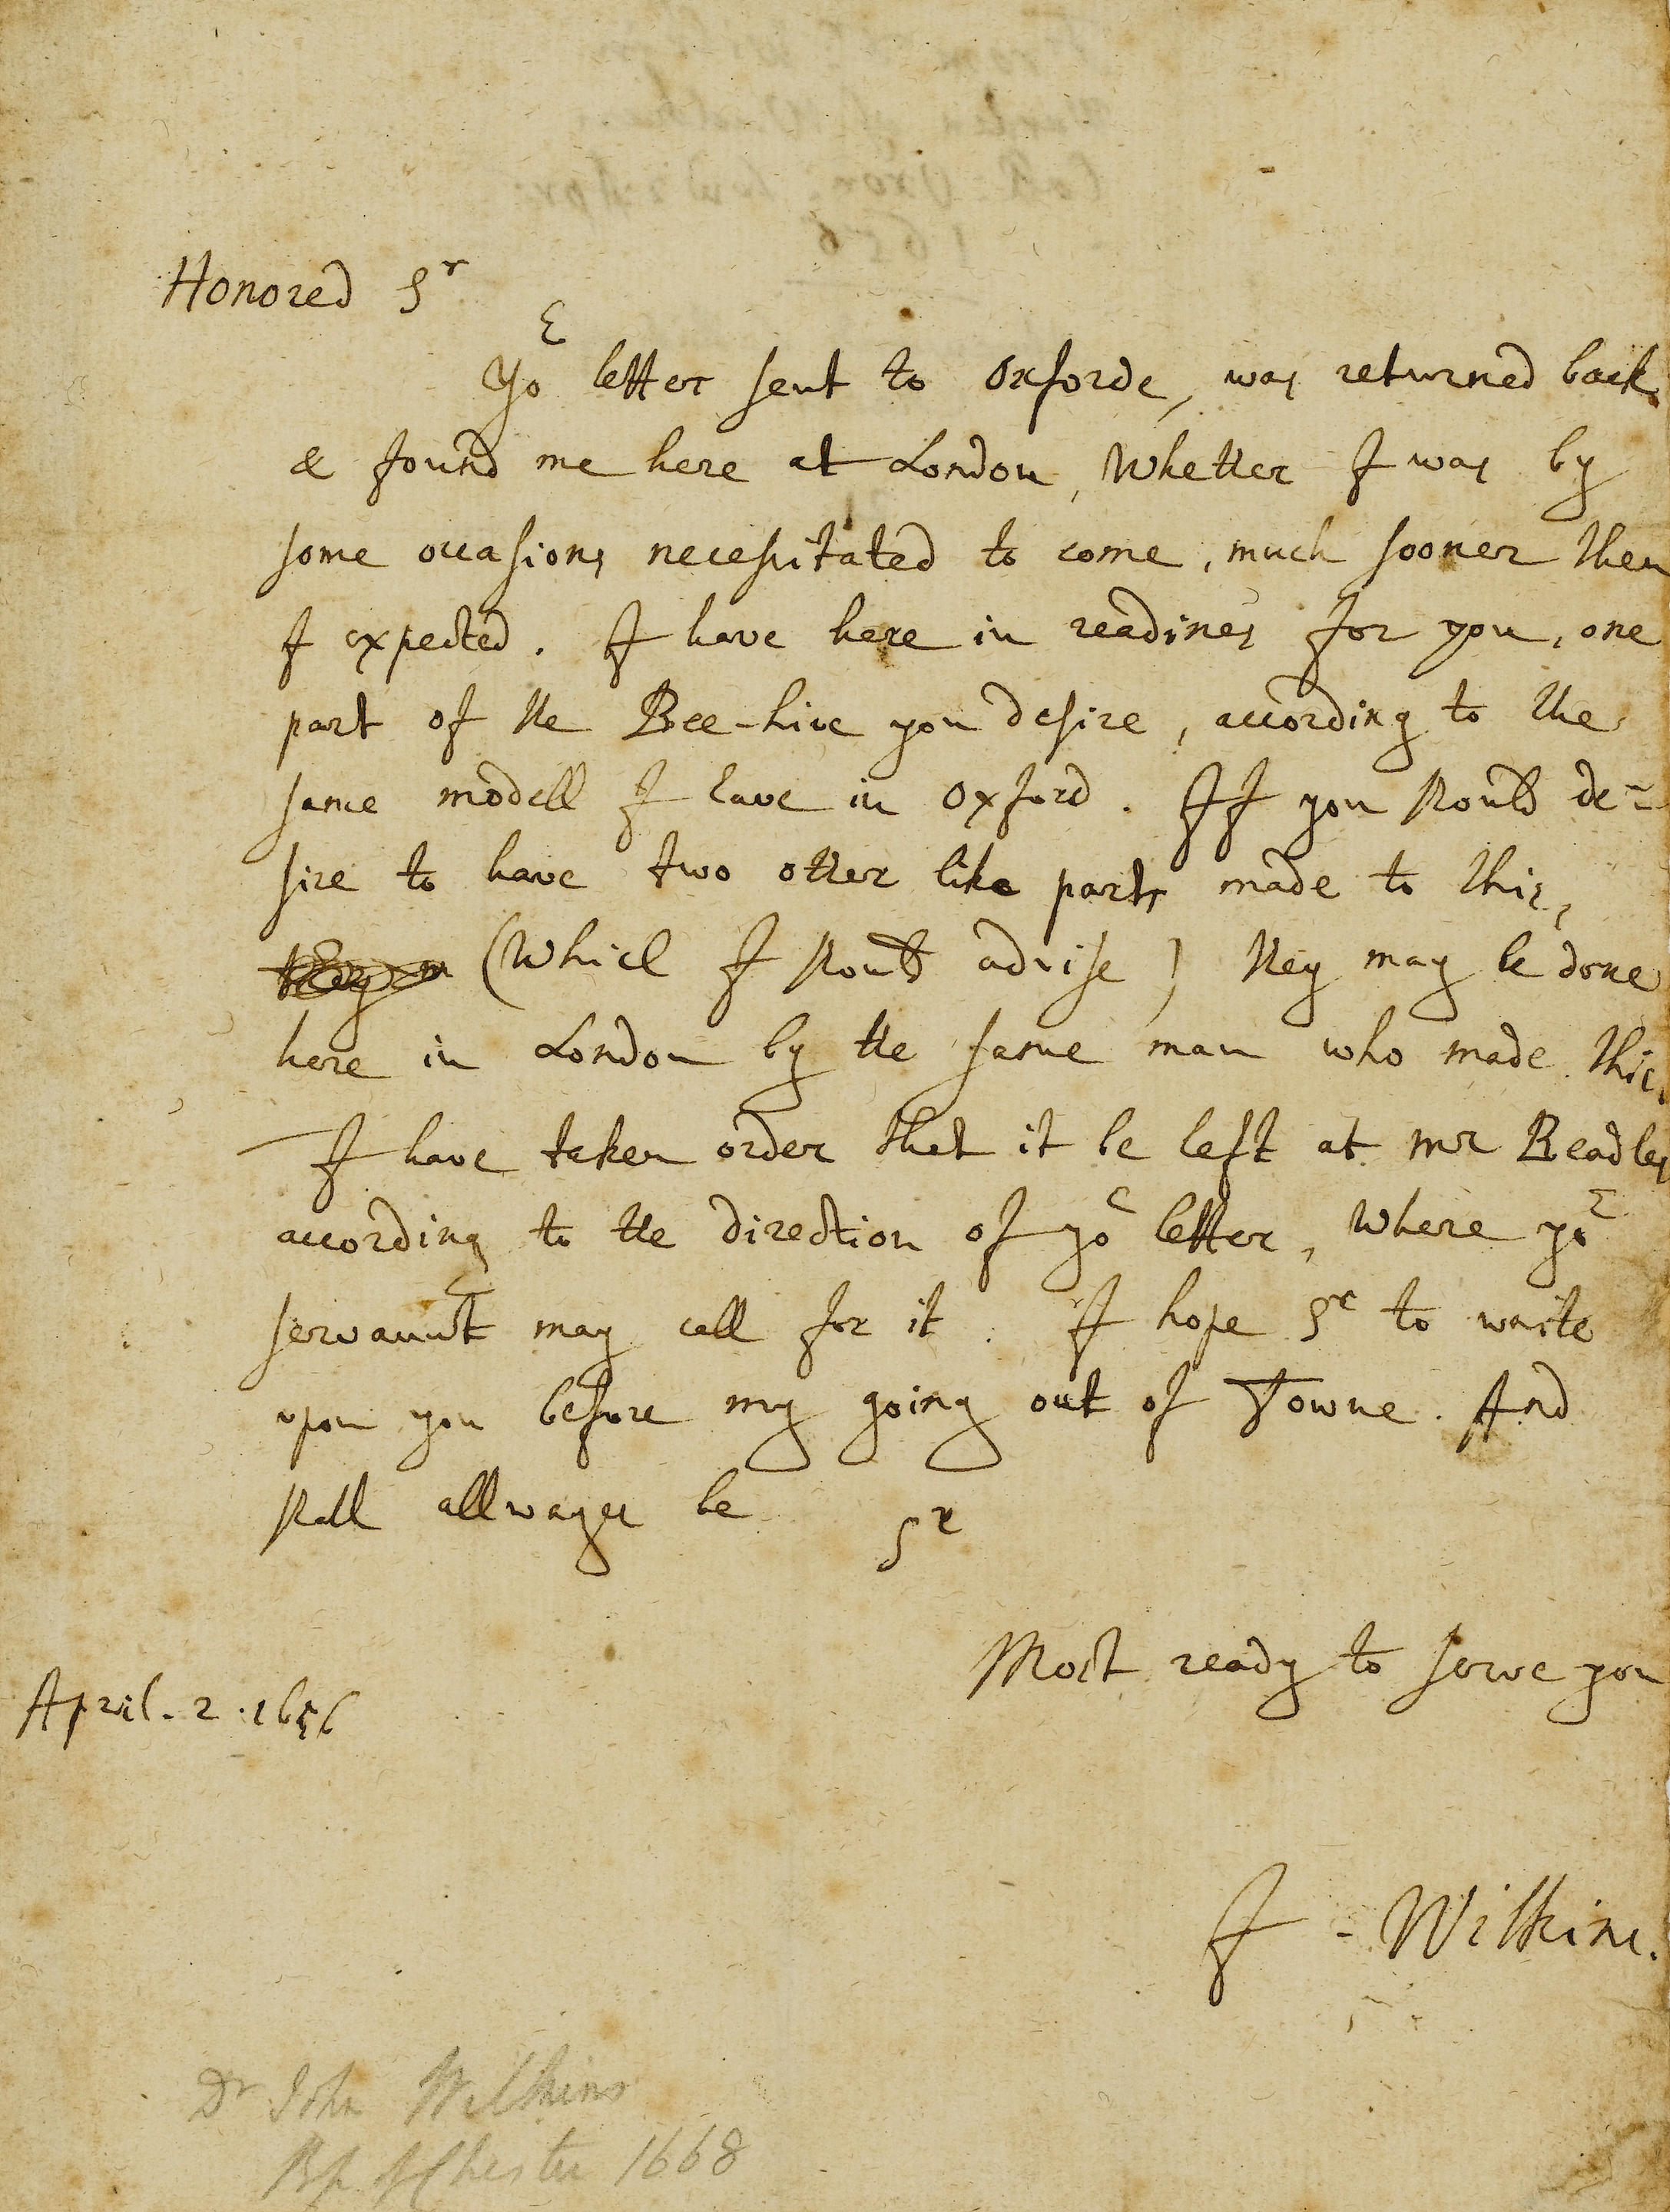 Honored Sr
Yor letter sent to Oxforde, was returned back
& found me here at London, Whether I was by
some occasions necessitated to come, much sooner then
I expected. I have here in readines for you, one
part of the Bee-hive you desire, according to the
same modell I have in Oxford. If you should de-
sire to have two other like parts made to this,
(which I should advise) they may be done
here in London by the same man who made this.
I have taken order that it be left at mr Beadles
according to the direction of yor letter, where yor
servaunt may call for it. I hope Sr to waite
upon you before my going out of Towne. And
shall allwayes be Sr
Most ready to serve you
April. 2. 1656
J - Wilkins.
Dr John Wilkins
Bp of Chester 1668